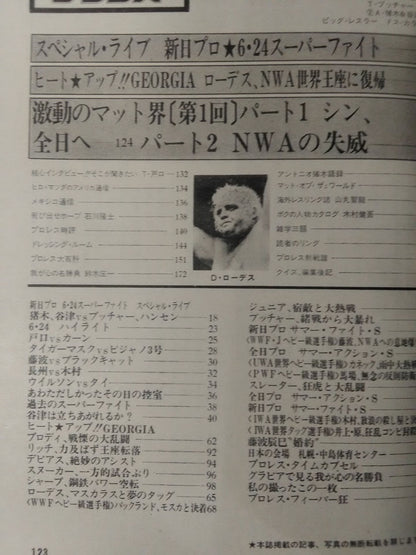 T・ブッチャー
ビッグ・レスラー
スペシャル・ライブ 新日プロ★6・24スーパーファイト
ヒート★アップ!!GEORGIA ローデス、NWA世界王座に復帰
激動のマット界〔第1回〕パート1 シン、
全日へ 124 パート2 NWAの失威
核心インタビューがそこが聞きたい T・戸口 132
ヒロ・マツダのアメリカ通信 134
メキシコ通信 136
飛び出せホープ 石川隆士 138
プロレス時評 140
ドレッシング・ルーム 144
プロレス大百科 151
我が心の名勝負 鈴木庄一 172
D・ローデス
アントニオ猪木語録
マット・オブ・ザ・ワールド
海外レスリング誌 山丸賢龍
ボクの人物カタログ 木村健吾
雑学三題
読者のリング
プロレス前戦譜
クイズ、編集後記
新日プロ 6・24スーパーファイト スペシャル・ライブ
猪木、谷津vsブッチャー、ハンセン 18
6・24 ハイライト 23
戸口vsカーン 25
タイガーマスクvsビジャノ3号 28
藤波vsブラックキャット 30
長州vs木村 32
ウイルソンvsタイ 34
あわただしかったその日の控室 36
過去のスーパーファイト 38
谷津は立ちあがれるか? 40
ヒート★アップ!!GEORGIA
ブロディ、戦慄の大乱闘 62
リッチ、力及ばず王座転落 92
デビアス、絶妙のアシスト 94
スヌーカー、一方的試合ぶり 96
シャープ、鋼鉄パワー空転 98
ローデス、マスカラスと夢のタッグ 65
(WWFヘビー級選手権)バックランド、モスカと決着 68
ジュニア、宿敵と大熱戦
ブッチャー、緒戦から大暴れ
新日プロ サマー・ファイト・S
全日プロ サマー・アクション・S
スレーター、狂虎と大乱闘
全日プロ サマー・アクション・S
新日プロ サマー・ファイト・S
藤波辰巳"婚約"
日本の会場 札幌・中島体育センター
プロレス・タイムカプセル
グラビアで見る我が心の名勝負
私の撮ったこの一枚
プロレス・フィーバー狂
123
★本誌掲載の記事、写真の無断転載を禁じ